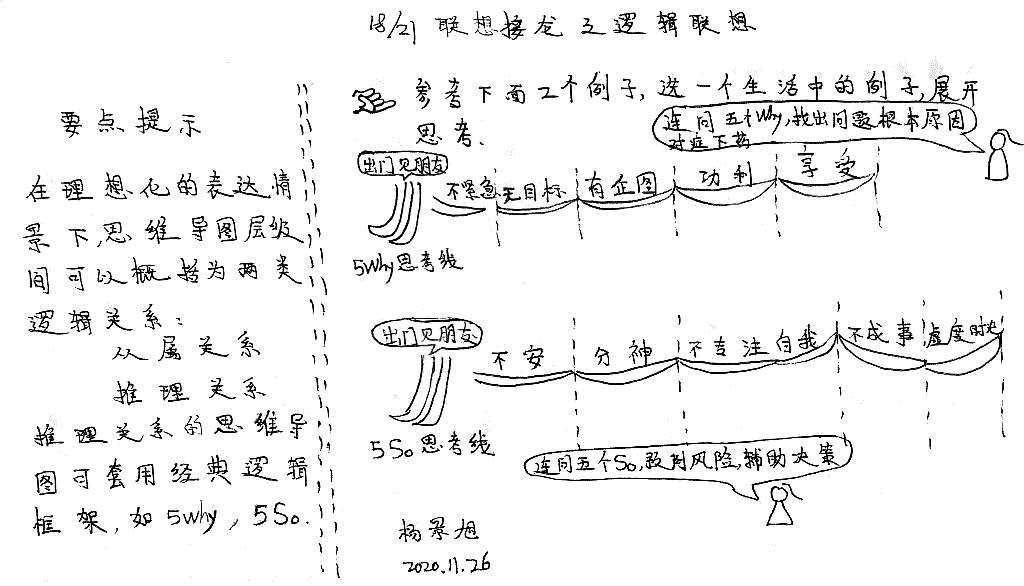 18/21 联想接龙之逻辑联想
要点提示
在理想化的表达情
景下,思维导图层级
间可以概括为两类
逻辑关系:
从属关系
推理关系
推理关系的思维导
图可套用经典逻辑
框架,如5why,5So.
参考下面2个例子,选一个生活中的例子,展开
思考.
连问五个Why,找出问题根本原因
对症下药
出门见朋友
不紧急 无目标 有企图 功利 享受
5Why思考线
出门见朋友
不安 分神 不专注自我 不成事 虚度时光
5So思考线
连问五个So,预判风险,辅助决策
杨景旭
2020.11.26